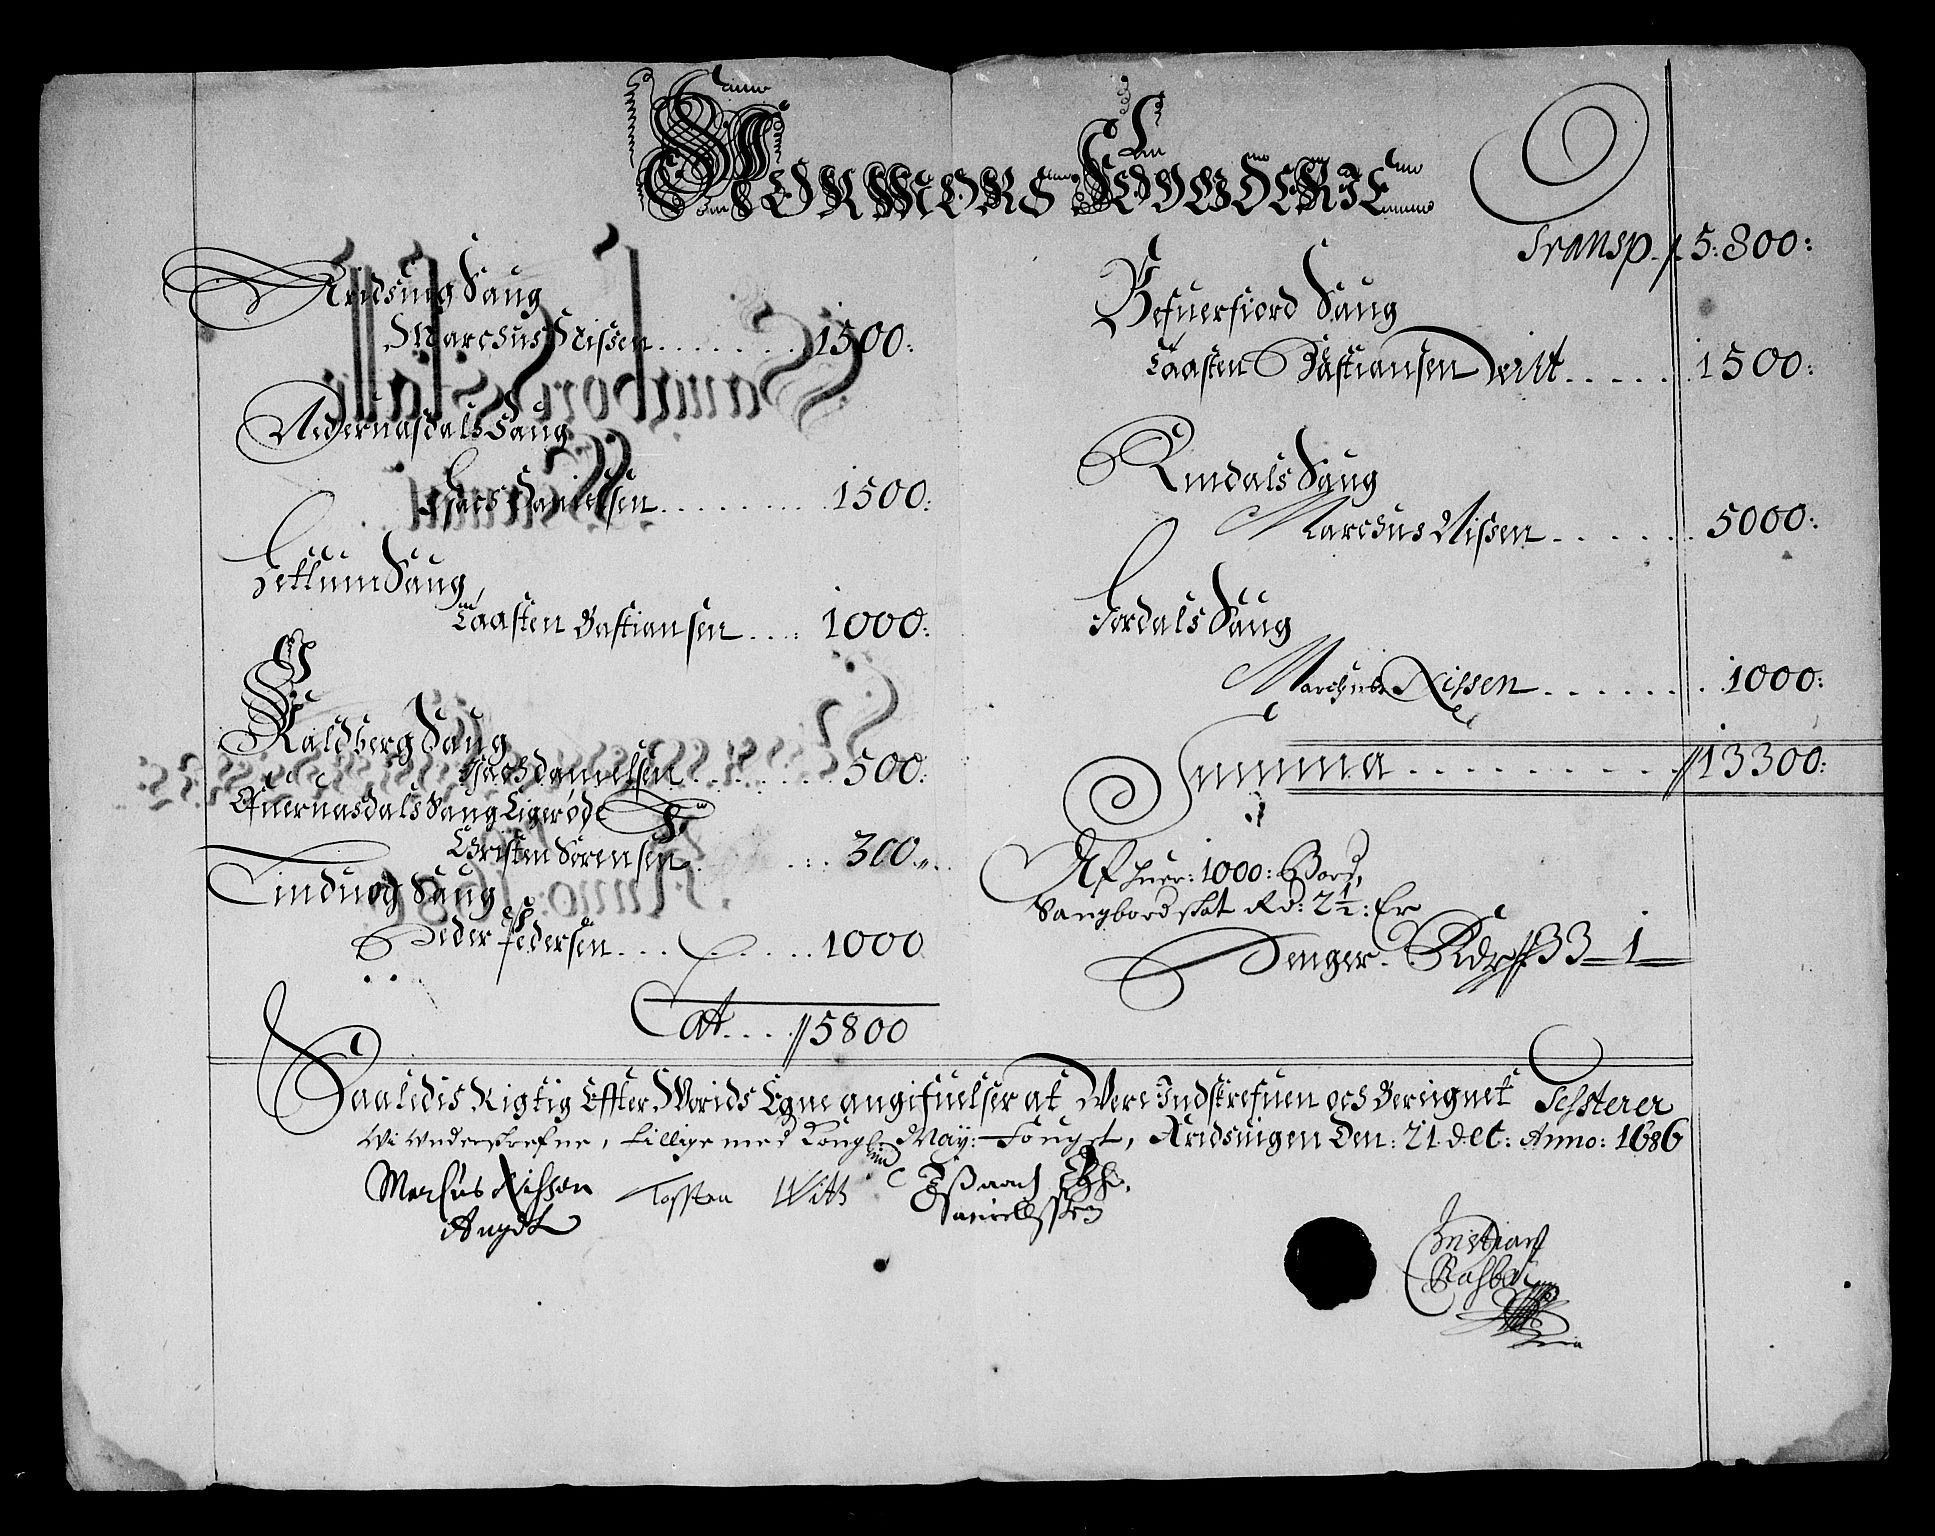 Nordmørs Fougderie
Aridsnig Saug
Marchus Nissen . . . . . . . 1500:
Nedernasdals Saug
Isach Danielsen . . . . . . . . 1500:
Settum Saug
Taasten Bastiansen . . . . 1000:
Kaldberg Saug
Isach Danielsen . . . . . . . 500:
Øfuernasdals Saug Ligerøde
Christen Sørensen . . . . 300
Tinduog Saug
Peder Pedersen . . . . . . . 1000
Lat . . . // 5800
Transp. // 5:800:
Befuerfiord Saug
Taasten Bastiansen Witt . . . . . . 1500:
Rindals Saug
Marchus Nissen . . . . . . 5000:
Jordals Saug
Marchus Nissen . . . . . . . 1000:
Summa . . . . . . . . . // 13300:
Af huer: 1000: Bord,
Saugbord skat Rd: 2½: Er
Penger - Rdr // 33 - 1 -
Saaledis Rigtig Effter Worids Egne angifuelser at Were Indskrefuen och Bereignet Testerer
Wi Underskrefne, tillige med Kongl: May: Fougt, Aridsnigen Den: 21 dec: Anno: 1686
Marchus Nissen Tossten Witt Issaach
Danielssen
Christian